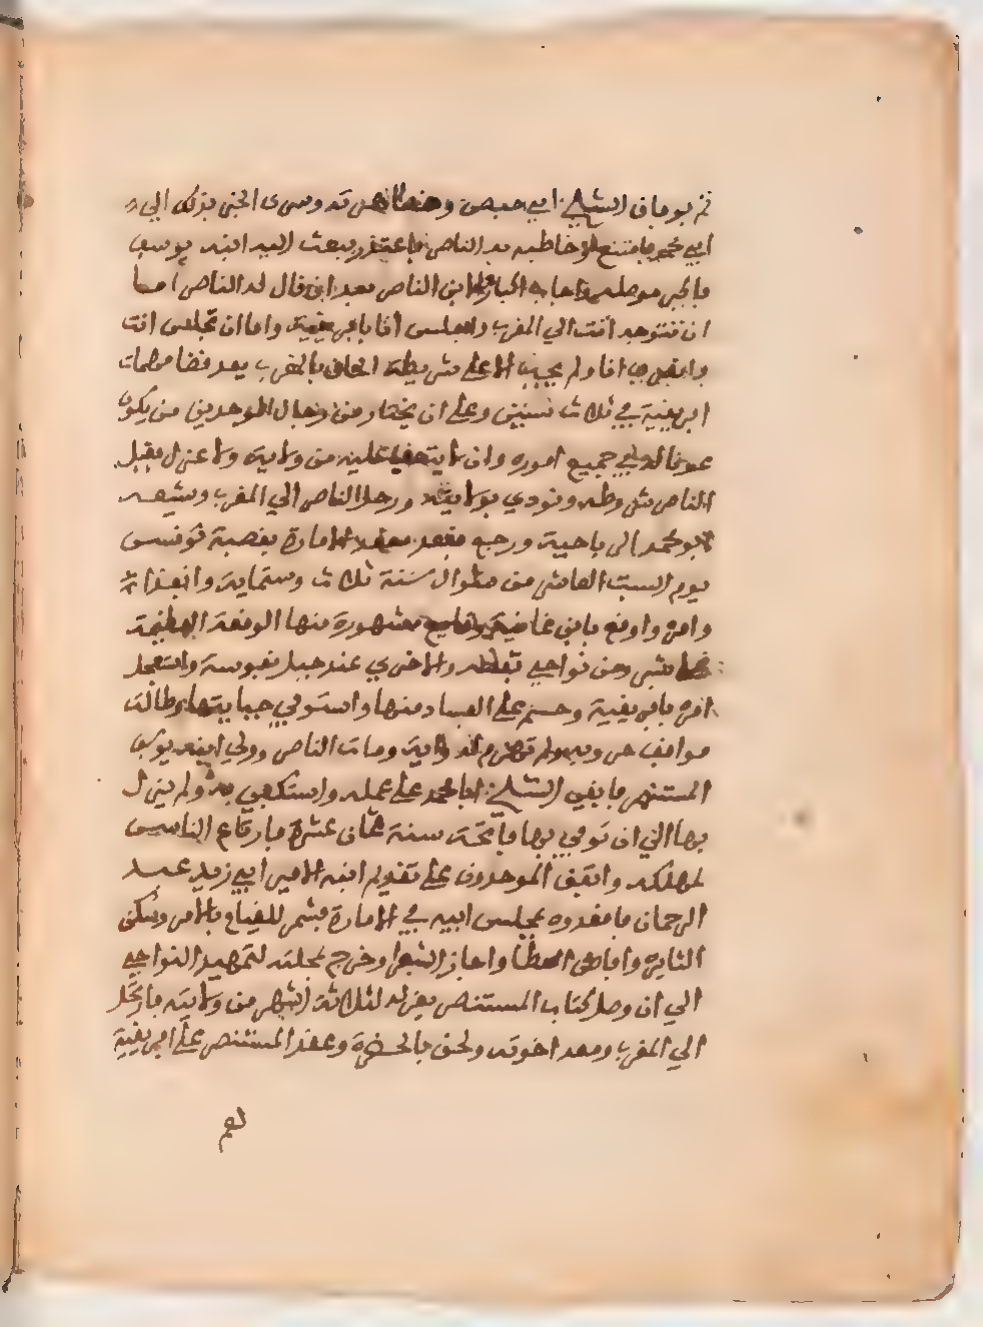 ثم يوما في الشيخ ابي حفص قد وسرى الخبر بذلك الى
ابي محمد فامتنع لو خاطبه به الناصر فاعتذر فبعث اليه ابنه يوسف
بالخبر موصله واجابه ابن الناصر بعد ان قال له الناصر اما
ان تتوجه انت الي المغرب واجلس انا بافريقية واما ان تجلس انت
وانصرف انا ولم يجبه الا على شريطة اللحاق بالمغرب بعد قضا مهمات
افريقية في ثلاث سنين وعلى ان يختار من رجال الموحدين من يكون
عونا له في جميع اموره وان لا يتعقب عليه من ولاية ولا عزل فقبل
الناصر شروطه ونودي بولايته ورحل الناصر الي المغرب وشيعه
ابو محمد الى باجية ورجع فقعد مقعد الامارة بقصبة تونس
يوم السبت العاشر من شوال سنة ثلاث وستماية وانفذ
وامره واوقع بابن غانية وقايع مشهورة منها الوقعة العظيمة
بشبرو من نواحي تبسة والاخرى عند جبل نفوسة واستفحل
امره بافريقية وحسم علل الفساد منها واستوفى جبايتها وطالت
مواقف حروبه ولم تهزم له راية ومات الناصر وولي ابنه يوسف
المستنصر فابقى الشيخ ابا محمد على عمله واستكفى به ولم يزل
بها الي ان توفي بها فاتحة سنة ثمان عشرة فارتاع الناس
لمهلكه واتفق الموحدون على تقديم ابنه الامير ابي زيد عبد
الرحمان فاقعدوه بمجلس ابيه في الامارة فشمر للقيام بالامر وسكن
النايرة وافاض العطا واجاز الشعرا وخرج بمحلته لتمهيد النواحي
الي ان وصل كتاب المستنصر بعزله لثلاثة اشهر من ولايته فارتحل
الي المغرب ومعه اخوته ولحق بالحضرة وعقد المستنصر على افريقية